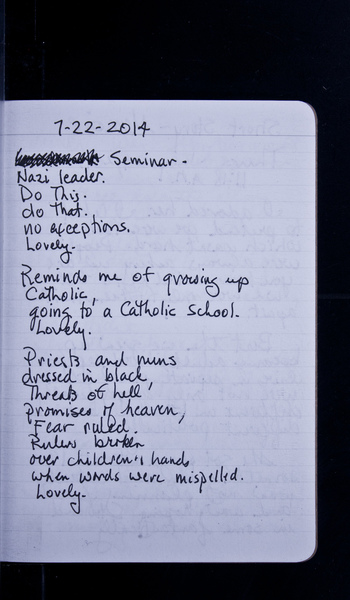 7-22-2014
Seminar.
Nazi leader.
Do This.
do that.
no exceptions.
Lovely.
Reminds me of growing up
Catholic,
going to a Catholic School.
Lovely.
Priests and nuns
dressed in black,
Threats of hell
promises of heaven,
Fear ruled.
Rulers broken
over children's hands
when words were mispelled.
Lovely.